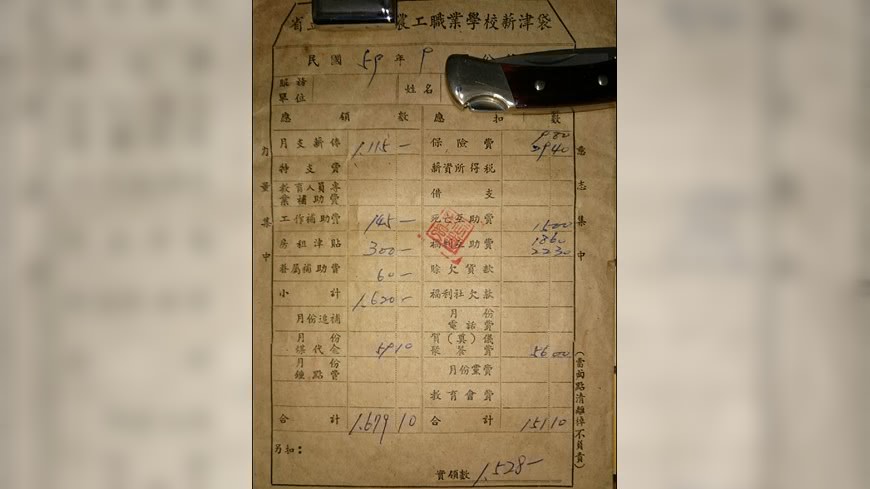 省立 農工職業學校薪津袋
民國 59 年 9
服務單位 姓名
應 領 數 應 扣 數
月支薪俸 1,115 — 保險費 980 2940
特支費 薪資所得稅
教育人員專業補助費 借支
工作補助費 145 — 死亡互助費 1500
房租津貼 300 — 福利互助費 1860 2230
眷屬補助費 60 — 賒欠貨款
小計 1,620 — 福利社欠款
月份追補 月份電話費
月份煤代金 5910 賀(奠)儀聚餐費 5600
月份鐘點費 月份棄費
教育會費
合計 1,679 10 合計 151 10
另扣:
實領數 1,528 —
力量集中
意志集中
(當面點清離櫃不負責)